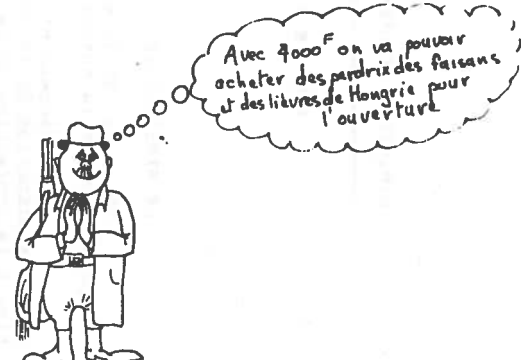 Avec 4000F on va pouvoir
acheter des perdrix des faisans
et des lièvres de Hongrie pour
l'ouverture